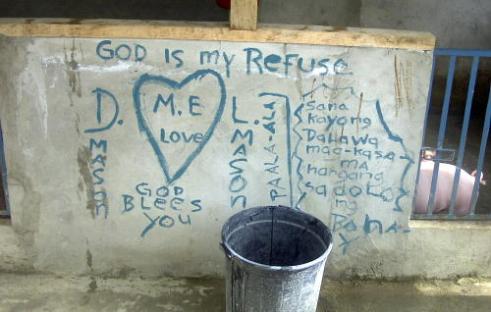 GOD is my Refuse
D. MASON
M.E
LOVE
L. MASON
GOD
BLEES
YOU
PAALA-ALA
Sana
kayong
Dalawa
maa-kasa
ma
hangang
sa dolo
ng
Buha
y